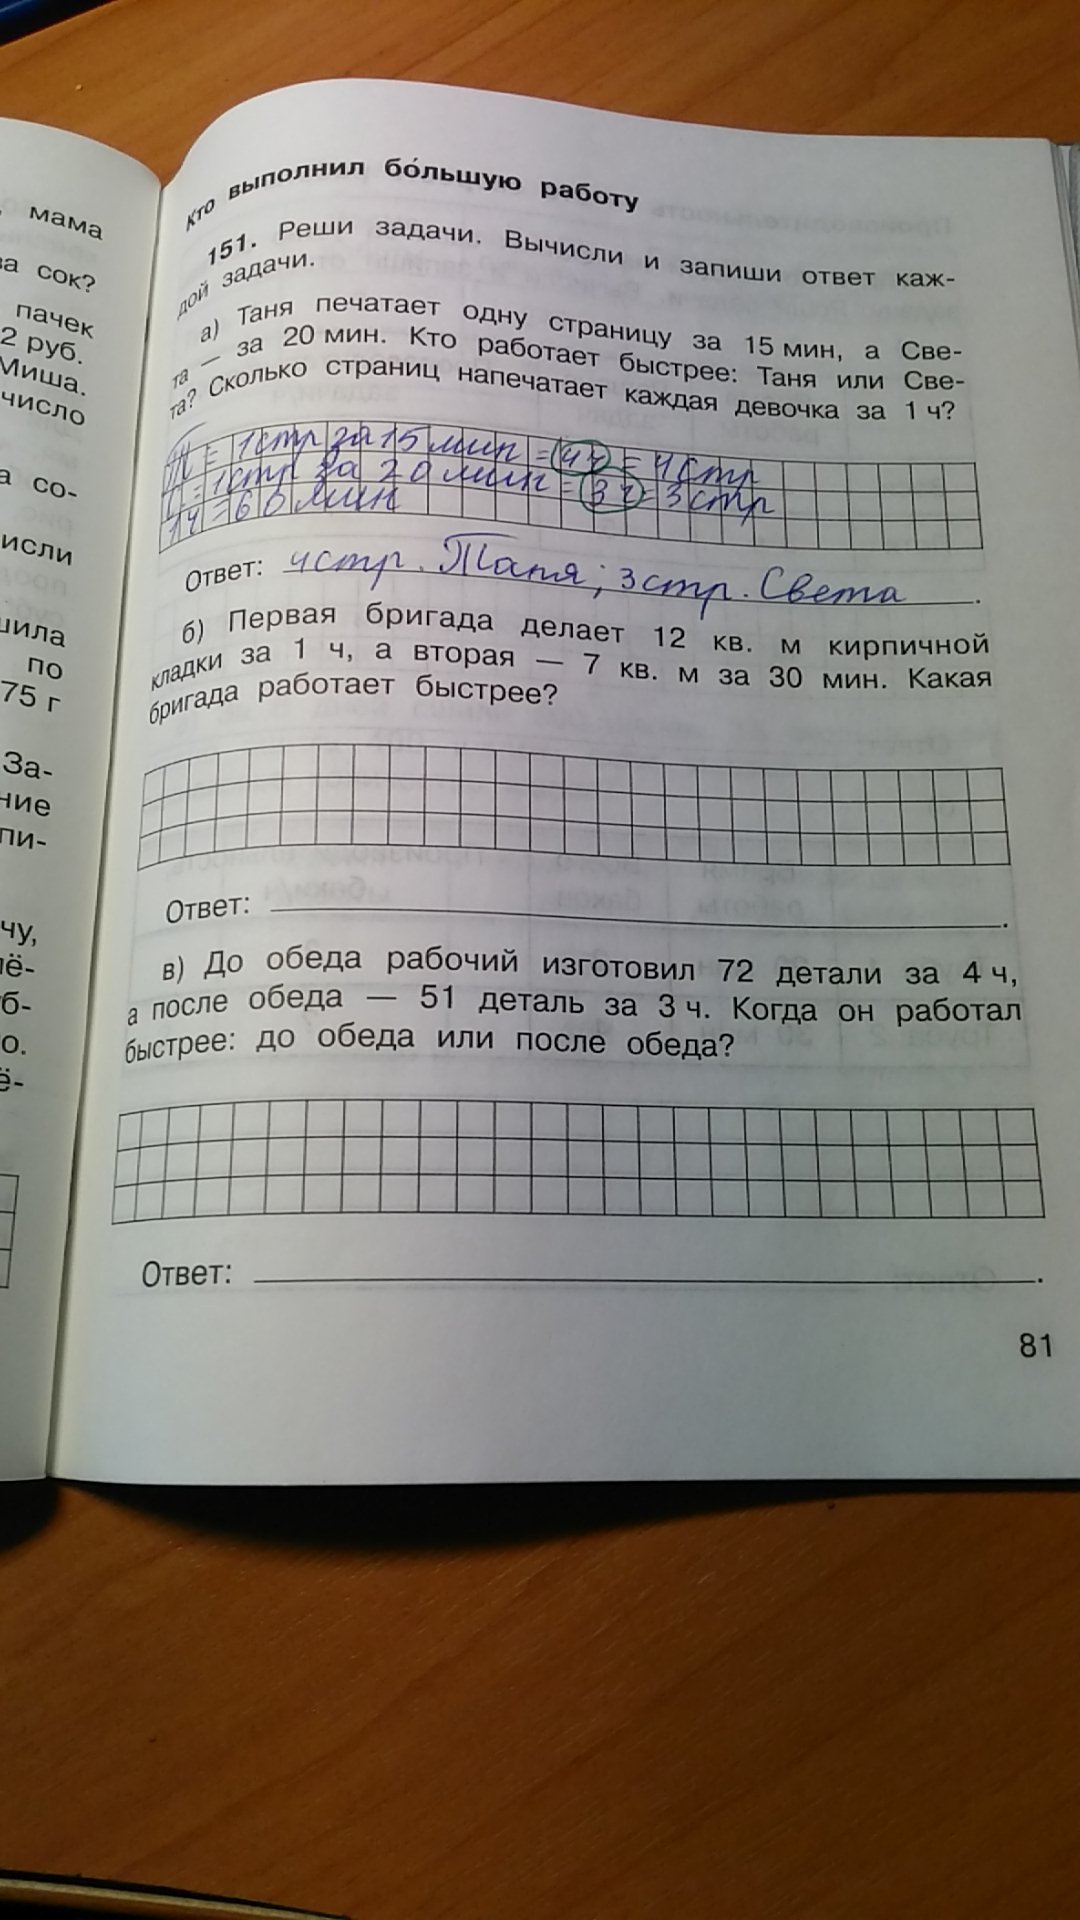 , мама
за сок?
пачек
2 руб.
Миша.
число
а со-
исли
шила
по
75 г
За-
ние
пи-
чу,
лё-
б-
о.
ё-
Кто выполнил бо́льшую работу
151. Реши задачи. Вычисли и запиши ответ каж-
дой задачи.
а) Таня печатает одну страницу за 15 мин, а Све-
та — за 20 мин. Кто работает быстрее: Таня или Све-
та? Сколько страниц напечатает каждая девочка за 1 ч?
= 1 стр за 15 мин = 4 = 4 стр
= 1 стр за 20 мин = 3 = 3 стр
1ч = 60 мин
Ответ: 4 стр. Таня; 3 стр. Света.
б) Первая бригада делает 12 кв. м кирпичной
кладки за 1 ч, а вторая — 7 кв. м за 30 мин. Какая
бригада работает быстрее?
Ответ: .
в) До обеда рабочий изготовил 72 детали за 4 ч,
а после обеда — 51 деталь за 3 ч. Когда он работал
быстрее: до обеда или после обеда?
Ответ: .
81